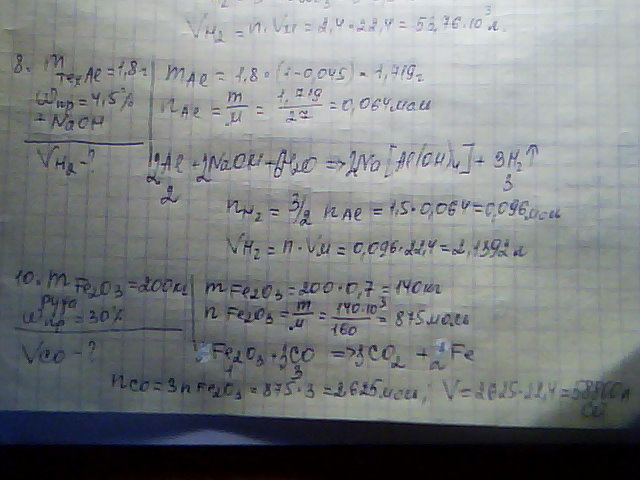 V H₂ = n · Vм = 2,4 · 22,4 = 53,76·10³ л.
8. m тех Al = 1,8 г
ωпр = 4,5%
+ NaOH
V H₂ - ?
m Al = 1,8 · (1-0,045) = 1,719 г
n Al = m/M = 1,719/27 = 0,064 моль
2Al + 2NaOH + 6H₂O => 2Na[Al(OH)₄] + 3H₂↑
2 3
n H₂ = 3/2 n Al = 1,5 · 0,064 = 0,096 моль
V H₂ = n · Vм = 0,096 · 22,4 = 2,1392 л
10. m Fe₂O₃ = 200 кг
руда
ωпр = 30%
V CO - ?
m Fe₂O₃ = 200 · 0,7 = 140 кг
n Fe₂O₃ = m/M = 140·10³/160 = 875 моль
Fe₂O₃ + 3CO => 3CO₂ + 2Fe
1 3
n CO = 3n Fe₂O₃ = 875 · 3 = 2625 моль; V = 2625 · 22,4 = 58800 л